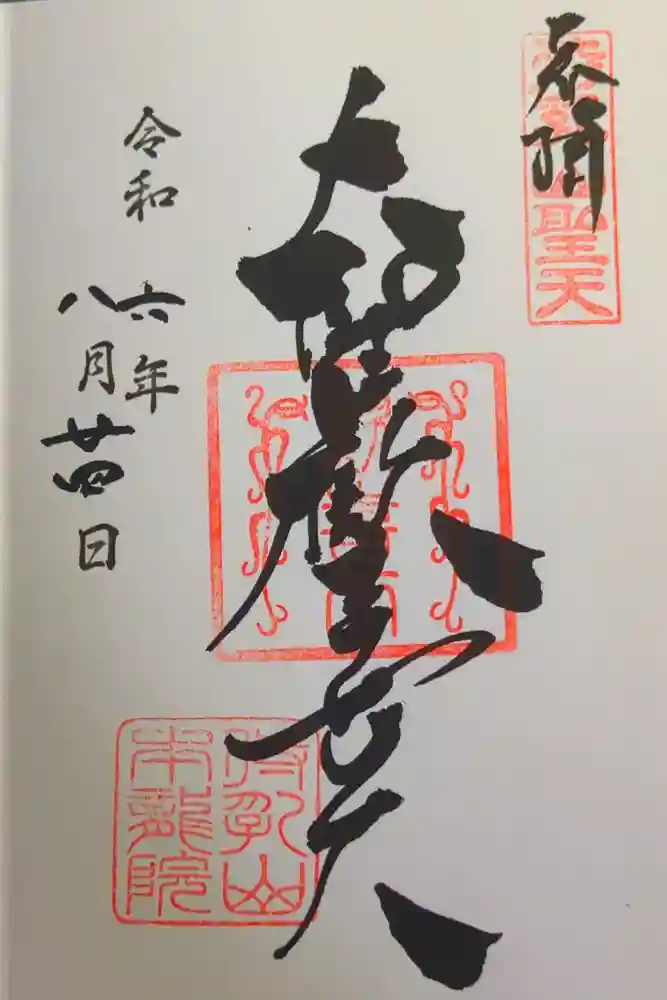 奉拝
聖天
大聖歓喜天
待乳山
本龍院
令和六年
八月廿四日